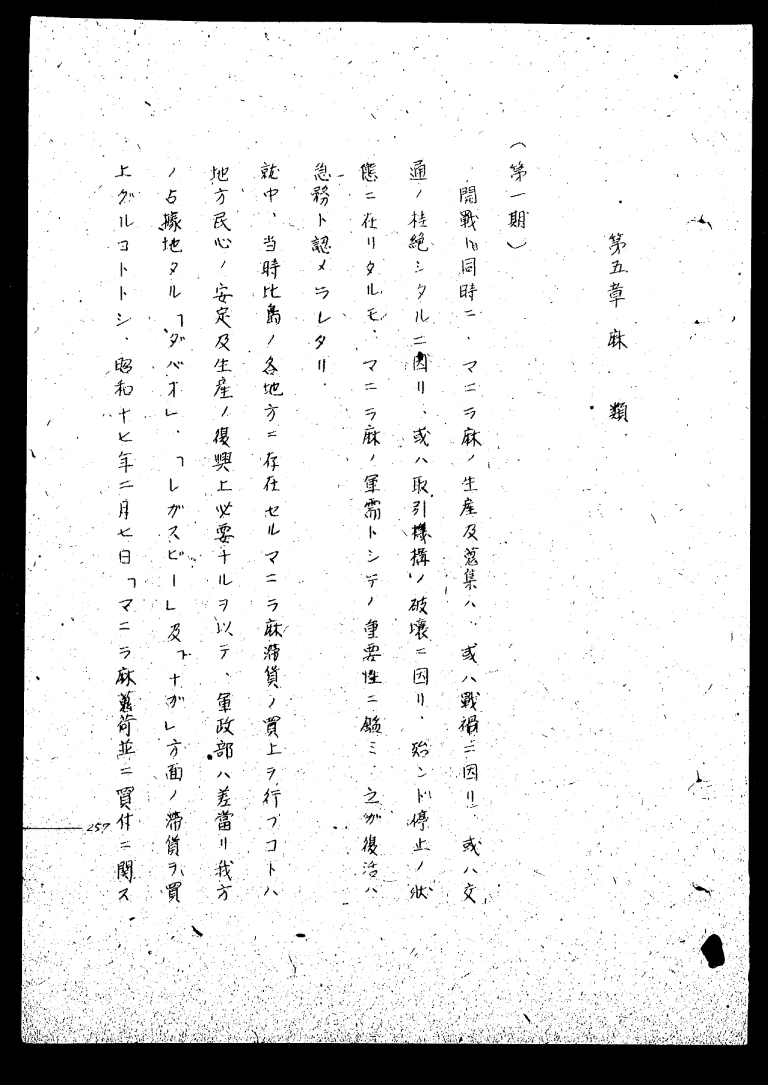 第五章 麻 類
（第一期）
開戰ト同時ニ、マニラ麻ノ生産及蒐集ハ、或ハ戰禍ニ因リ、或ハ交
通ノ杜絶シタルニ因リ、或ハ取引機構ノ破壞ニ因リ、殆ンド停止ノ狀
態ニ在リタルモ、マニラ麻ノ軍需トシテノ重要性ニ鑑ミ、之ガ復活ハ
急務ト認メラレタリ.
就中、当時比島ノ各地方ニ存在セルマニラ麻滯貨ノ買上ヲ行フコトハ
地方民心ノ安定及生産ノ復興上必要ナルヲ以テ、軍政部ハ差當リ我方
ノ占據地タル「ダバオ」、「レガスピー」及「ナガ」方面ノ滯貨ヲ買
上グルコトトシ、昭和十七年二月七日「マニラ麻蒐荷並ニ買付ニ関ス
257